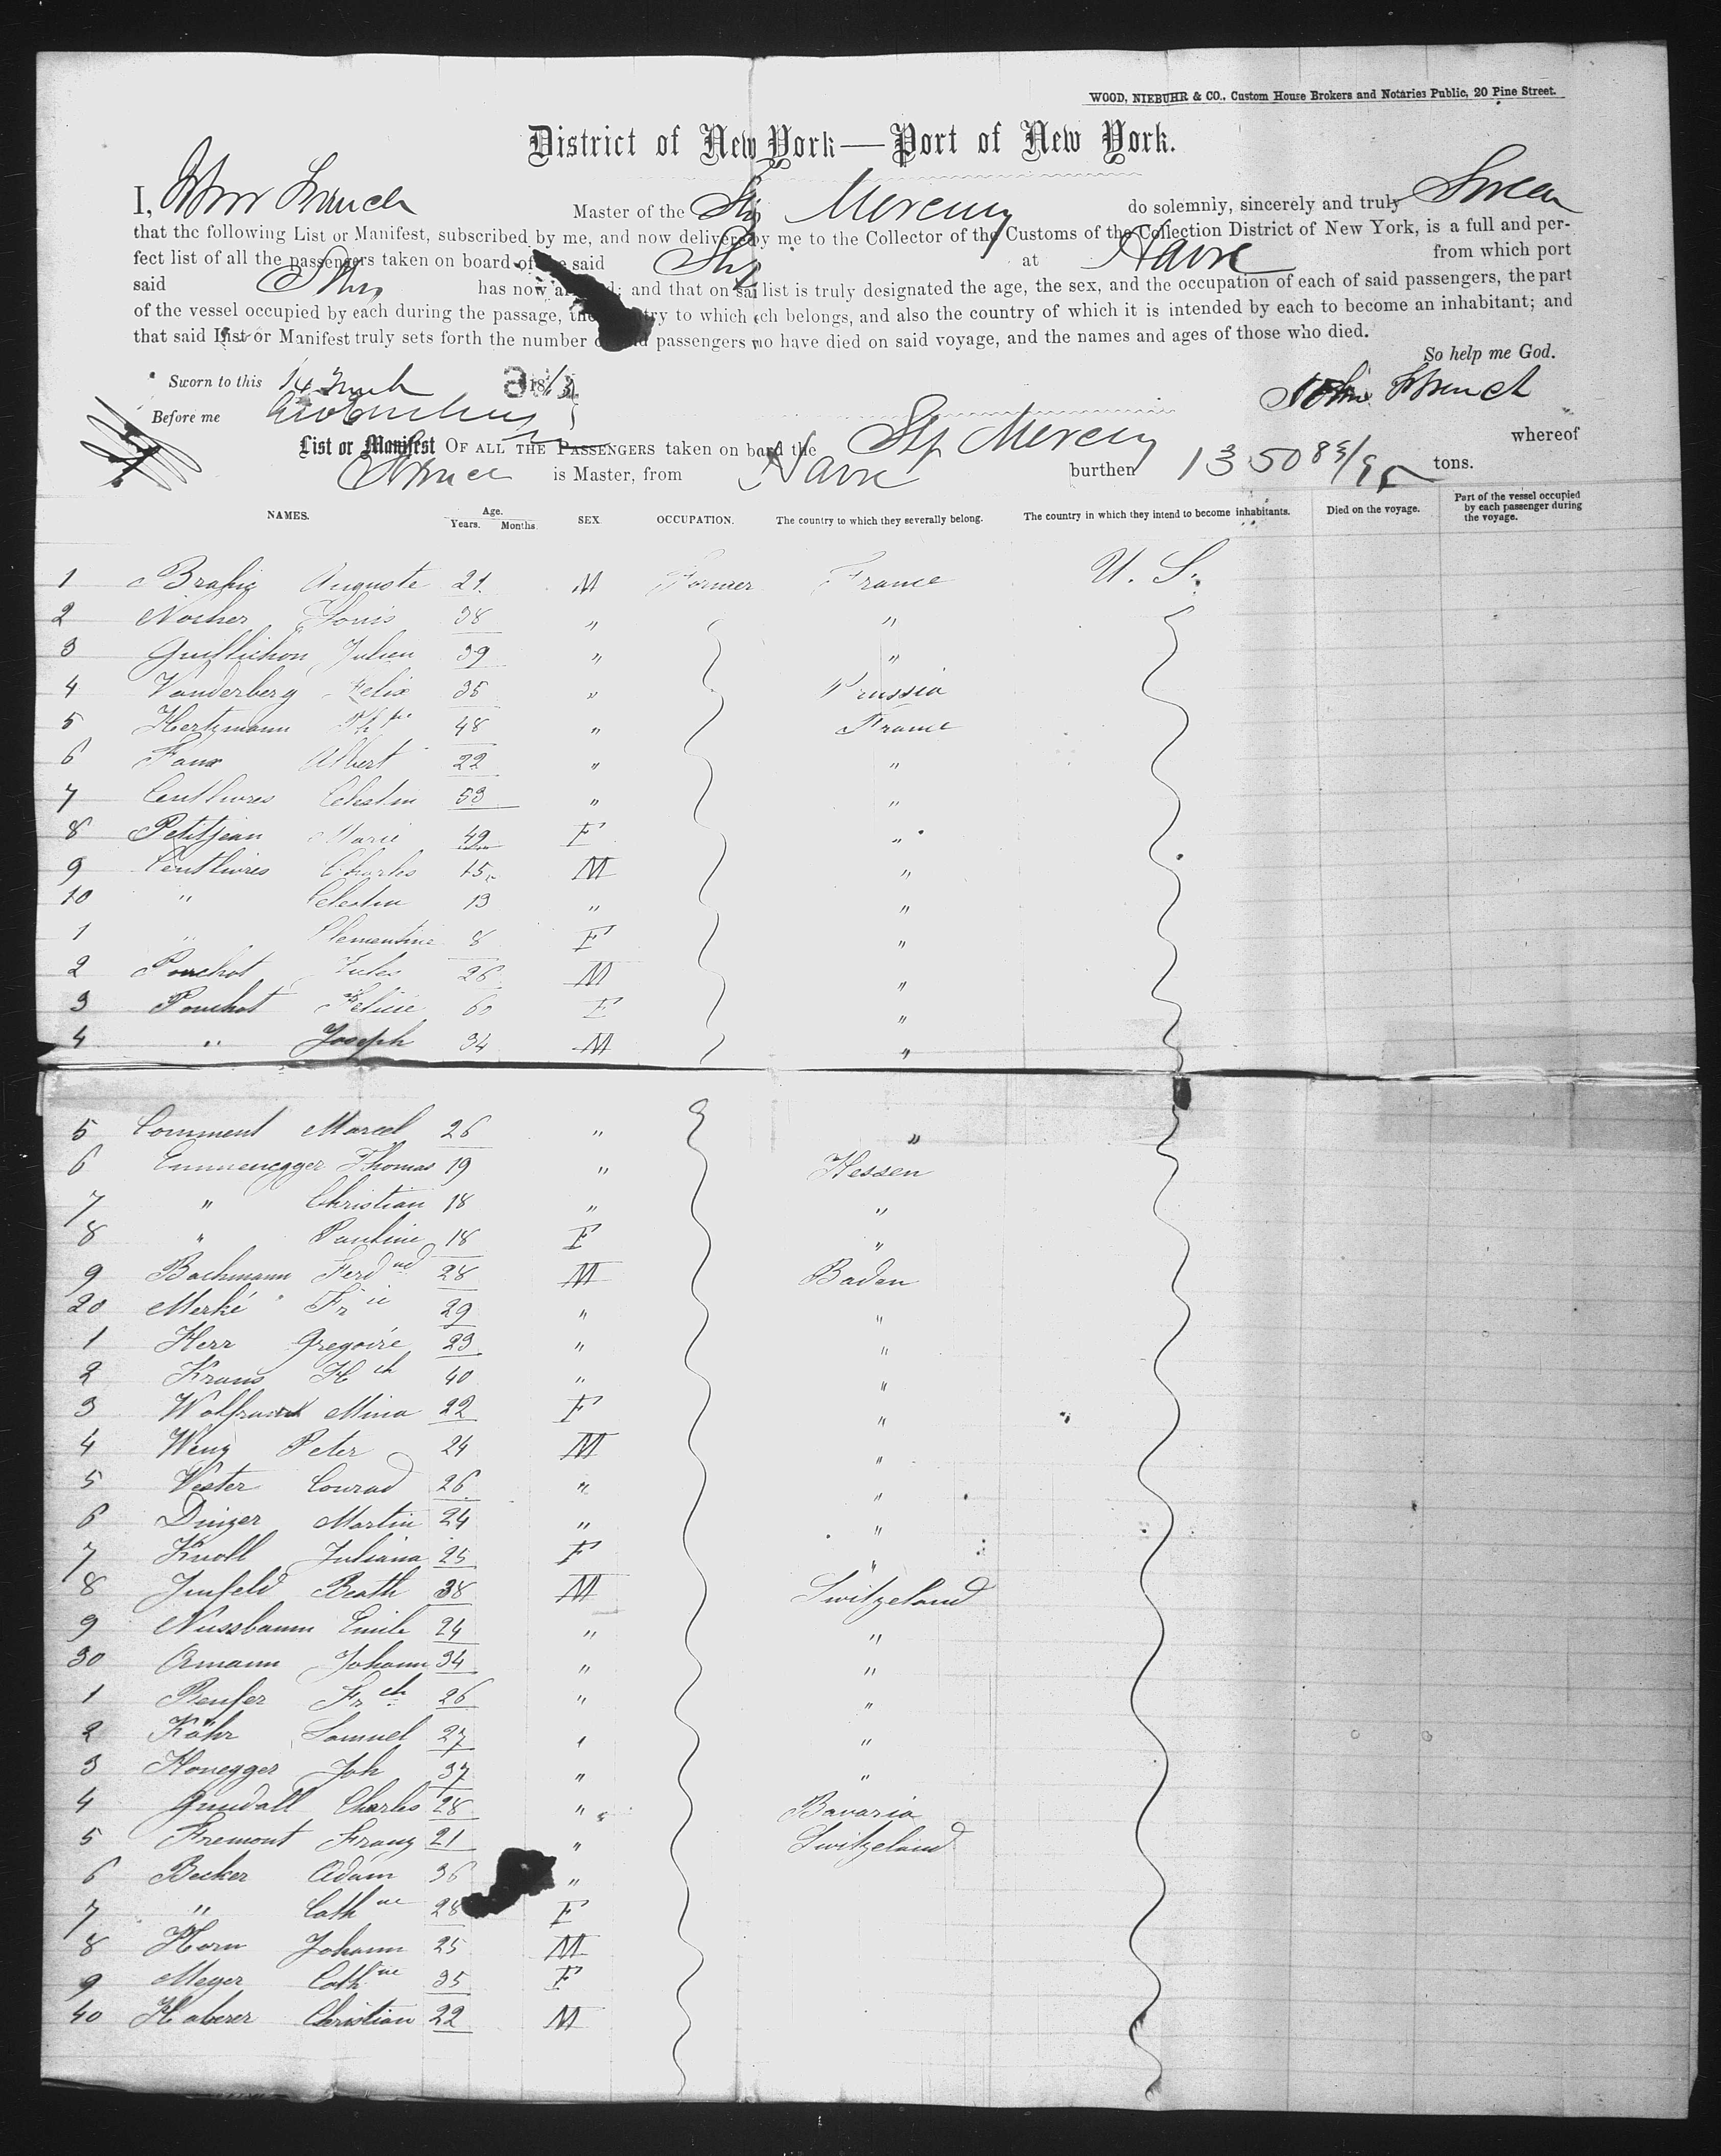 WOOD, NIEBUHR & CO., Custom House Brokers and Notaries Public, 20 Pine Street.
District of New York—Port of New York.
I, John French Master of the Ship Mercury do solemnly, sincerely and truly Swear
that the following List or Manifest, subscribed by me, and now delivered by me to the Collector of the Customs of the Collection District of New York, is a full and per-
fect list of all the passengers taken on board of the said Ship at Havre from which port
said Ship has now arrived; and that on said list is truly designated the age, the sex, and the occupation of each of said passengers, the part
of the vessel occupied by each during the passage, the country to which each belongs, and also the country of which it is intended by each to become an inhabitant; and
that said List or Manifest truly sets forth the number of said passengers who have died on said voyage, and the names and ages of those who died.
So help me God.
Sworn to this 14 March 18 John French
Before me
List or Manifest OF ALL THE PASSENGERS taken on board the Ship Mercury whereof
French is Master, from Havre burthen 1350 tons.
NAMES. Age. Years. Months. SEX OCCUPATION. The country to which they severally belong. The country in which they intend to become inhabitants. Died on the voyage. Part of the vessel occupied by each passenger during the voyage.
1 Auguste 21 M Farmer France U. S.
2 Nocher Louis 38 " "
3 Julien 39 " "
4 Vanderberg Felix 35 " Prussia
5 Hertzmann 48 " France
6 Faux Albert 22 " "
7 Centlivres Celestin 53 " "
8 Petitjean Marie 49 F "
9 Centlivres Charles 15 M "
10 " Celestin 13 " "
1 " Clementine 8 F "
2 Pouchot Jules 26 M "
3 Pouchot Felicie 60 F "
4 " Joseph 34 M "
5 Comment Marcel 26 " "
6 Emmenegger Thomas 19 " Hessen
7 " Christian 18 " "
8 " Pauline 18 F "
9 Bachmann Ferdnd 28 M Baden
20 Merké 29 " "
1 Herr Gregoire 23 " "
2 Kraus Hch 40 " "
3 Mina 22 F "
4 Wenz Peter 24 M "
5 Vester Conrad 26 " "
6 Dinger Martin 24 " "
7 Knoll Juliana 25 F "
8 Beath 38 M Switzeland
9 Nussbaum Emile 24 " "
30 Amann Johann 34 " "
1 Renfer Frch 26 " "
2 Kohr Samuel 27 " "
3 Honegger Joh 37 " "
4 Charles 28 " Bavaria
5 Fremont Franz 21 " Switzeland
6 Becker Adam 36 "
7 " Cathne 28 F
8 Horn Johann 25 M
9 Meyer Cathne 35 F
40 Haberer Christian 22 M